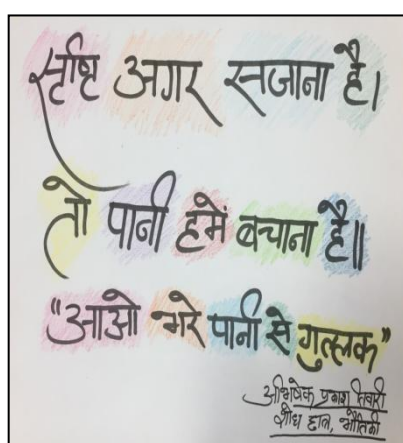 सृष्टि अगर सजाना है।
तो पानी हमें बचाना है॥
"आओ भरे पानी से गुल्लक"
अभिषेक प्रकाश तिवारी
शोध छात्र, भौतिकी